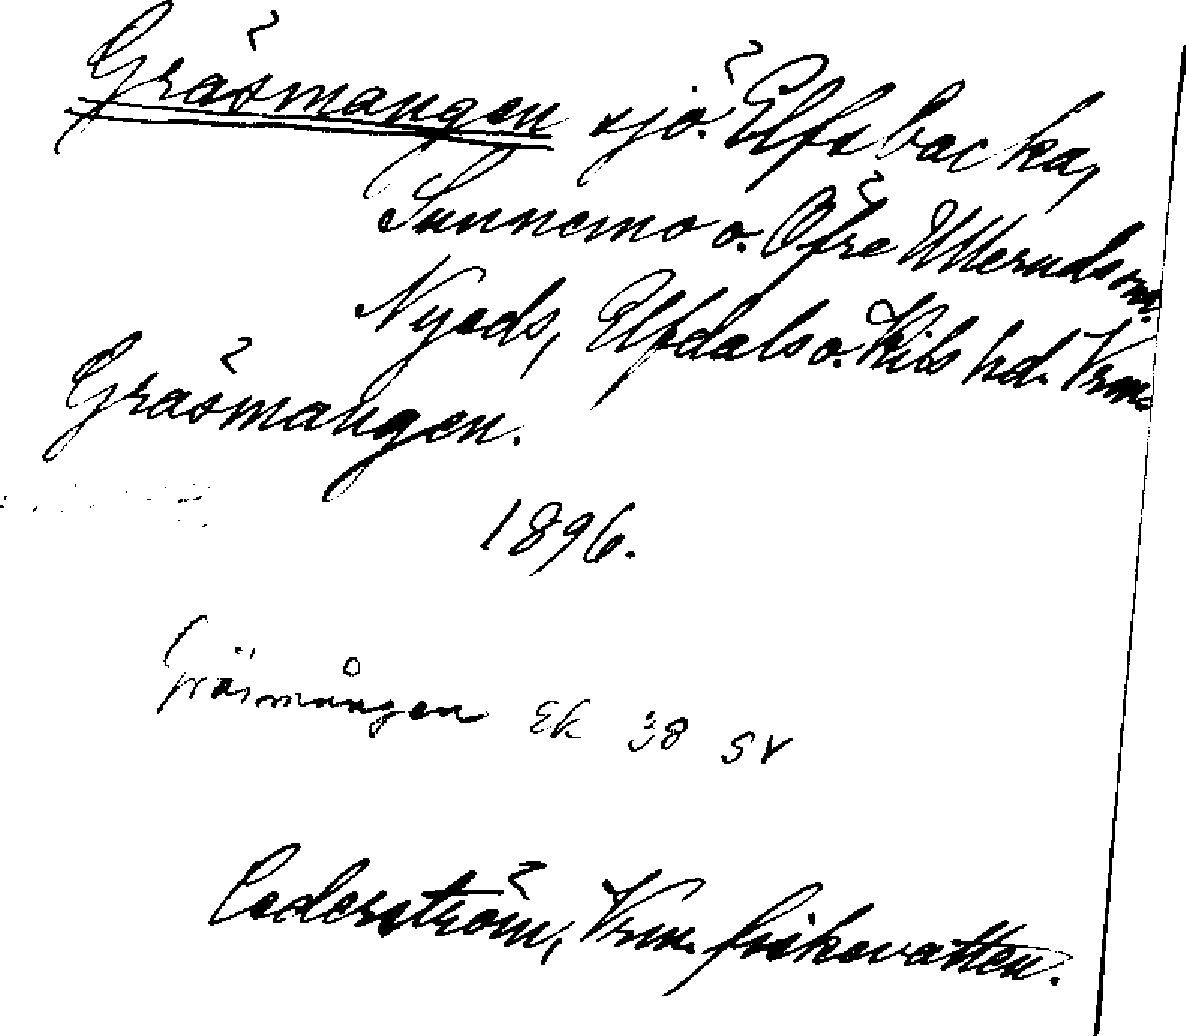 Gräsmangen sjö. Elfsbacka,
Sunnemo o. Öfre Ulleruds snr.
Nyeds, Elfdals o. Kils hd. Vrm.
Gräsmangen.
1896.
Gräsmången Ek 38 SV
Cederström, Vrm. fiskevatten.